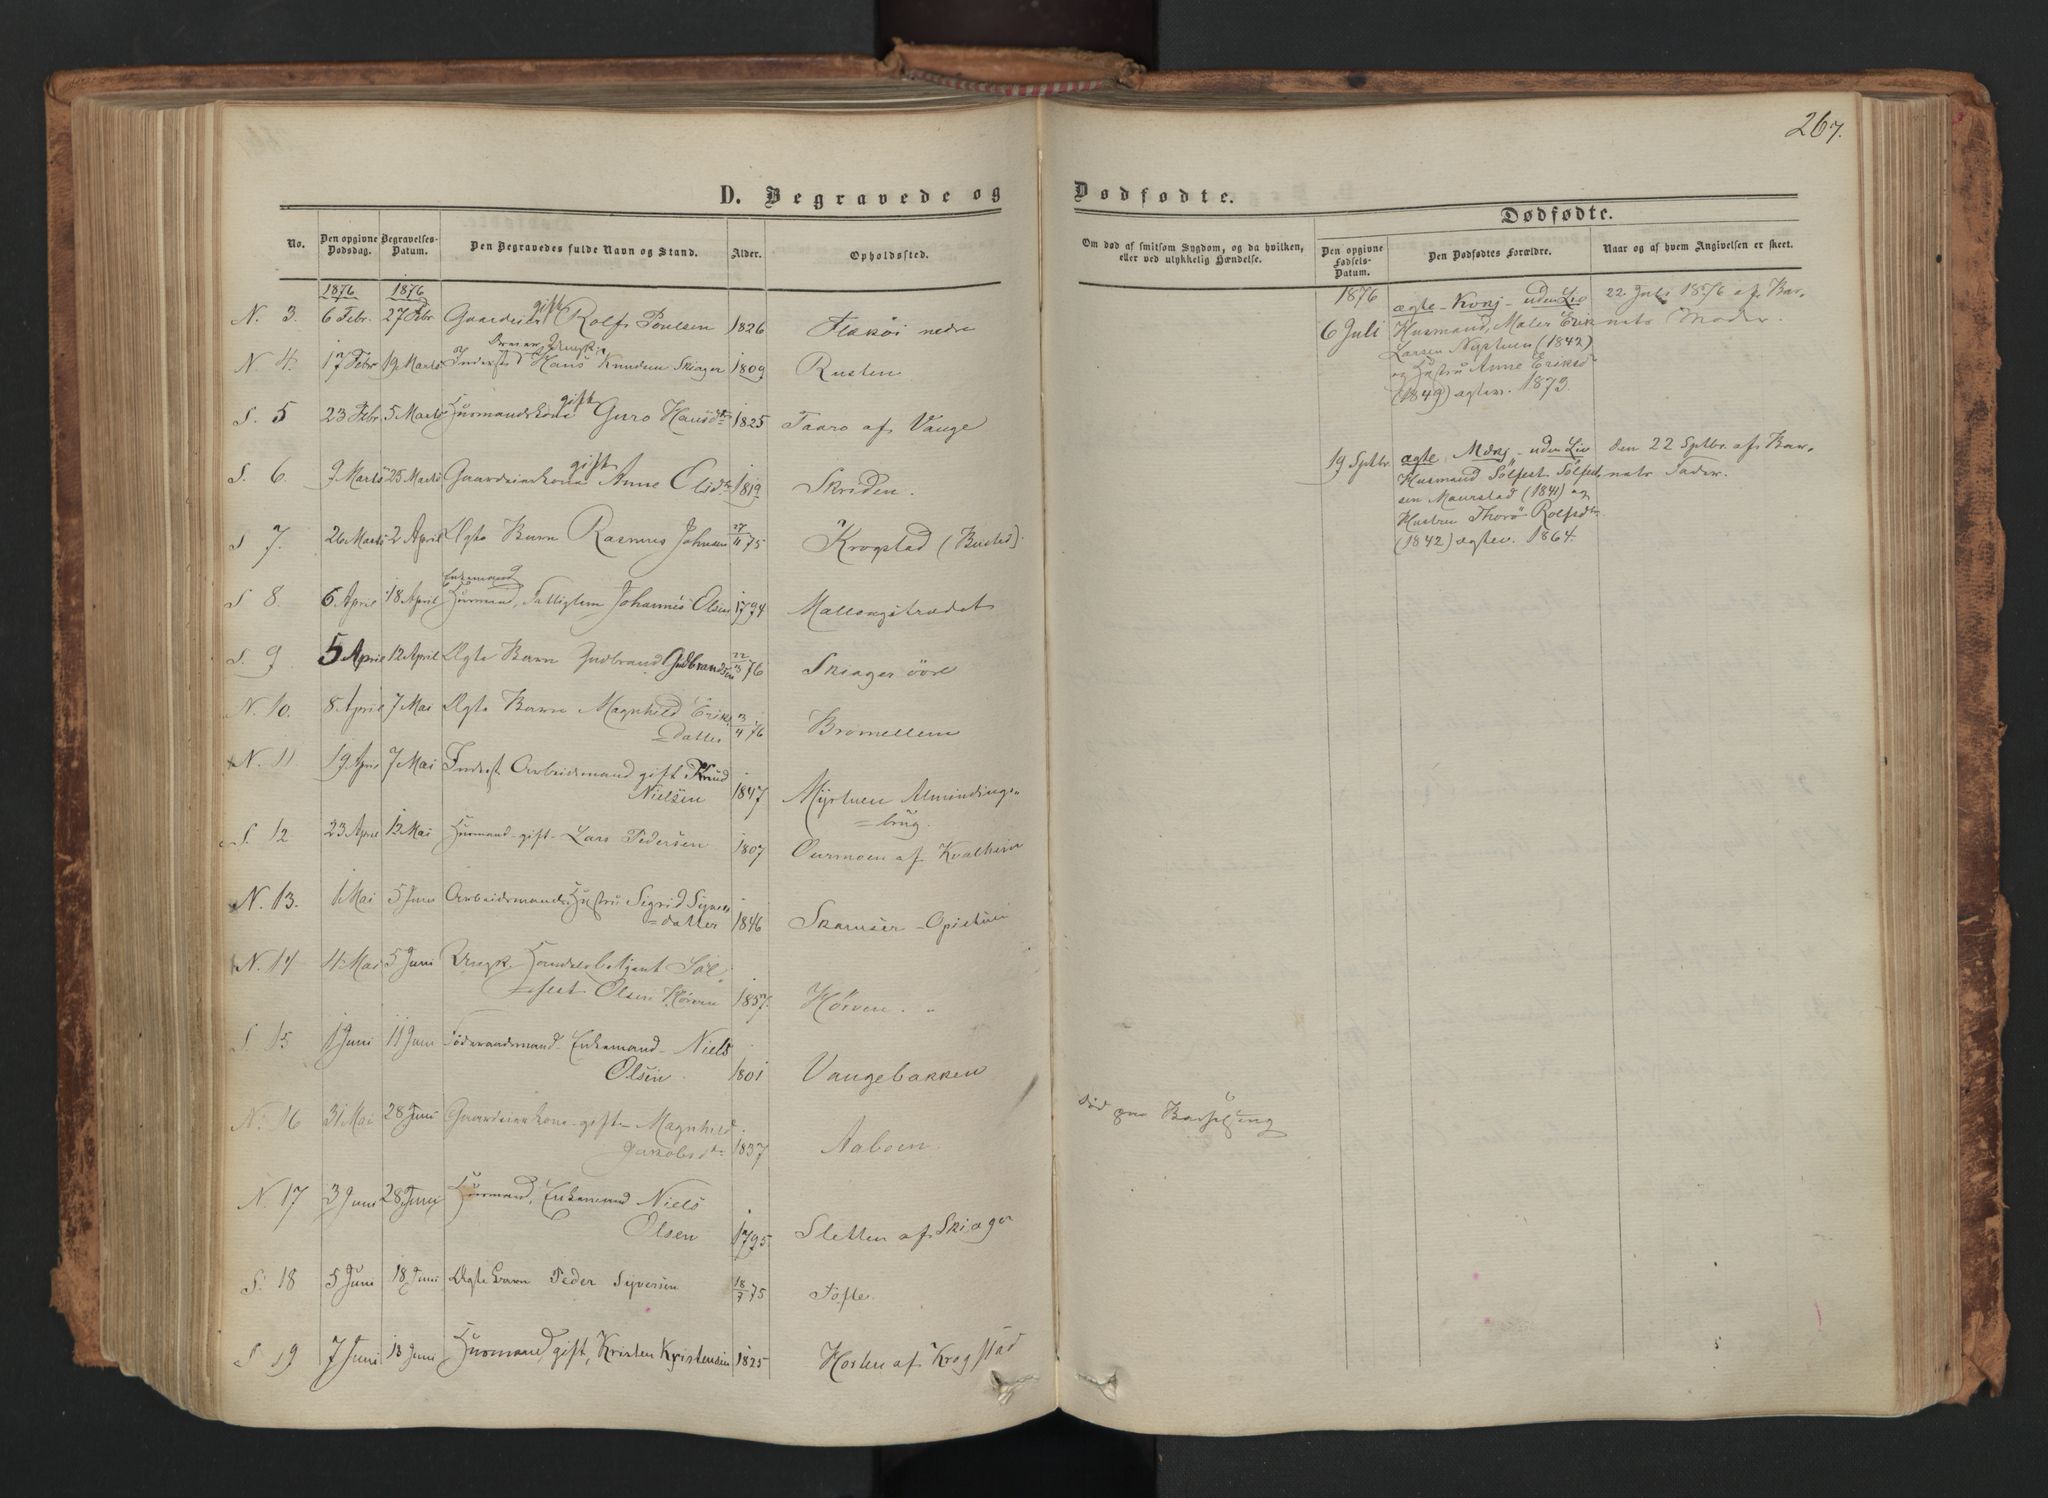 267.
D. Begravede og Dødfødte.
Dødfødte.
No. Den opgivne Dødsdag. Begravelses-Datum. Den Begravedes fulde Navn og Stand. Alder. Opholdssted.
Om død af smitsom Sygdom, og da hvilken, eller ved ulykkelig Hændelse. Den opgivne Fødsels-Datum. Den Dødfødtes Forældre. Naar og af hvem Angivelsen er skeet.
1876 1876
N. 3. 6 Febr. 27 Febr Gaardeier gift Rolf Poulsen 1826 Flækøi nedre
N 4. 17 Febr 19 Marts Inderst Ungk. Hans Knudsen Skiager 1809 Rusten
S. 5 23 Febr 5 Marts Husmandskone gift Guro Hansdtr 1825 Taaro af Vange
S. 6. 9 Marts 25 Marts Gaardeierkone gift Anne Olsdtr 1819 Skriden.
S 7. 26 Marts 2 April Ægte Barn Rasmus Johnsen 27/11 75 Krogstad
S 8. 6 April 18 April Enkemand
Husmand, Fattiglem Johannes Olsen 1794
S. 9 5 April 12 April Ægte Barn Gudbrand Gudbrandsen 22/3 76 Skiager øvre
N. 10. 8 April 7 Mai Ægte Barn Magnhild Eriks
datter 3/4 76
N. 11 19 April 7 Mai Inderst Arbeidsmand gift Knud
Nielsen 1847 Myrtuen Almindings=
=brug.
S. 12 23 April 12 Mai Husmand - gift - Lars Pedersen 1807 Ourmoen af Kvalheim
N. 13. 1 Mai 5 Juni Arbeidsmands Hustru Sigrid Syvers
=datter 1846
N. 14 4 Mai 5 Juni Ungk. Handelsbetjent Søl
=fest Olsen Hørven 1857. Hørven.
S. 15 1 Juni 11 Juni Føderaadsmand - Enkemand - Niels
Olsen. 1801 Vangebakken
N. 16 31 Mai 28 Juni Gaardeierkone - gift - Magnhild
Jakobsdtr 1837 Aaboen. død paa Barselseng
N. 17 3 Juni 28 Juni Husmand, Enkemand Niels
Olsen 1795 Sletten af Skiager
S. 18 5 Juni 18 Juni Ægte Barn Peder Syversen 18/7 75 Tofte
S 19 7 Juni 13 Juni Husmand, gift, Kristen Kristensen 1825 Horten af Krogstad
1876
6 Juli ægte - Kvkj - uden Liv 22 Juli 1876 af Bar-
Husmand, Maler Erik nets Moder.
Larsen Nystuen (1842)
og Hustru Anne Eriksd
(1849) ægtev. 1873.
19 Sptbr. ægte, Mdkj - uden Liv den 22 Sptbr. af Bar-
Husmand Sølfest Sølfest nets Fader.
sen Maurstad (1841) og
Hustru Thorø Rolfsdtr
(1842) ægtev. 1864.